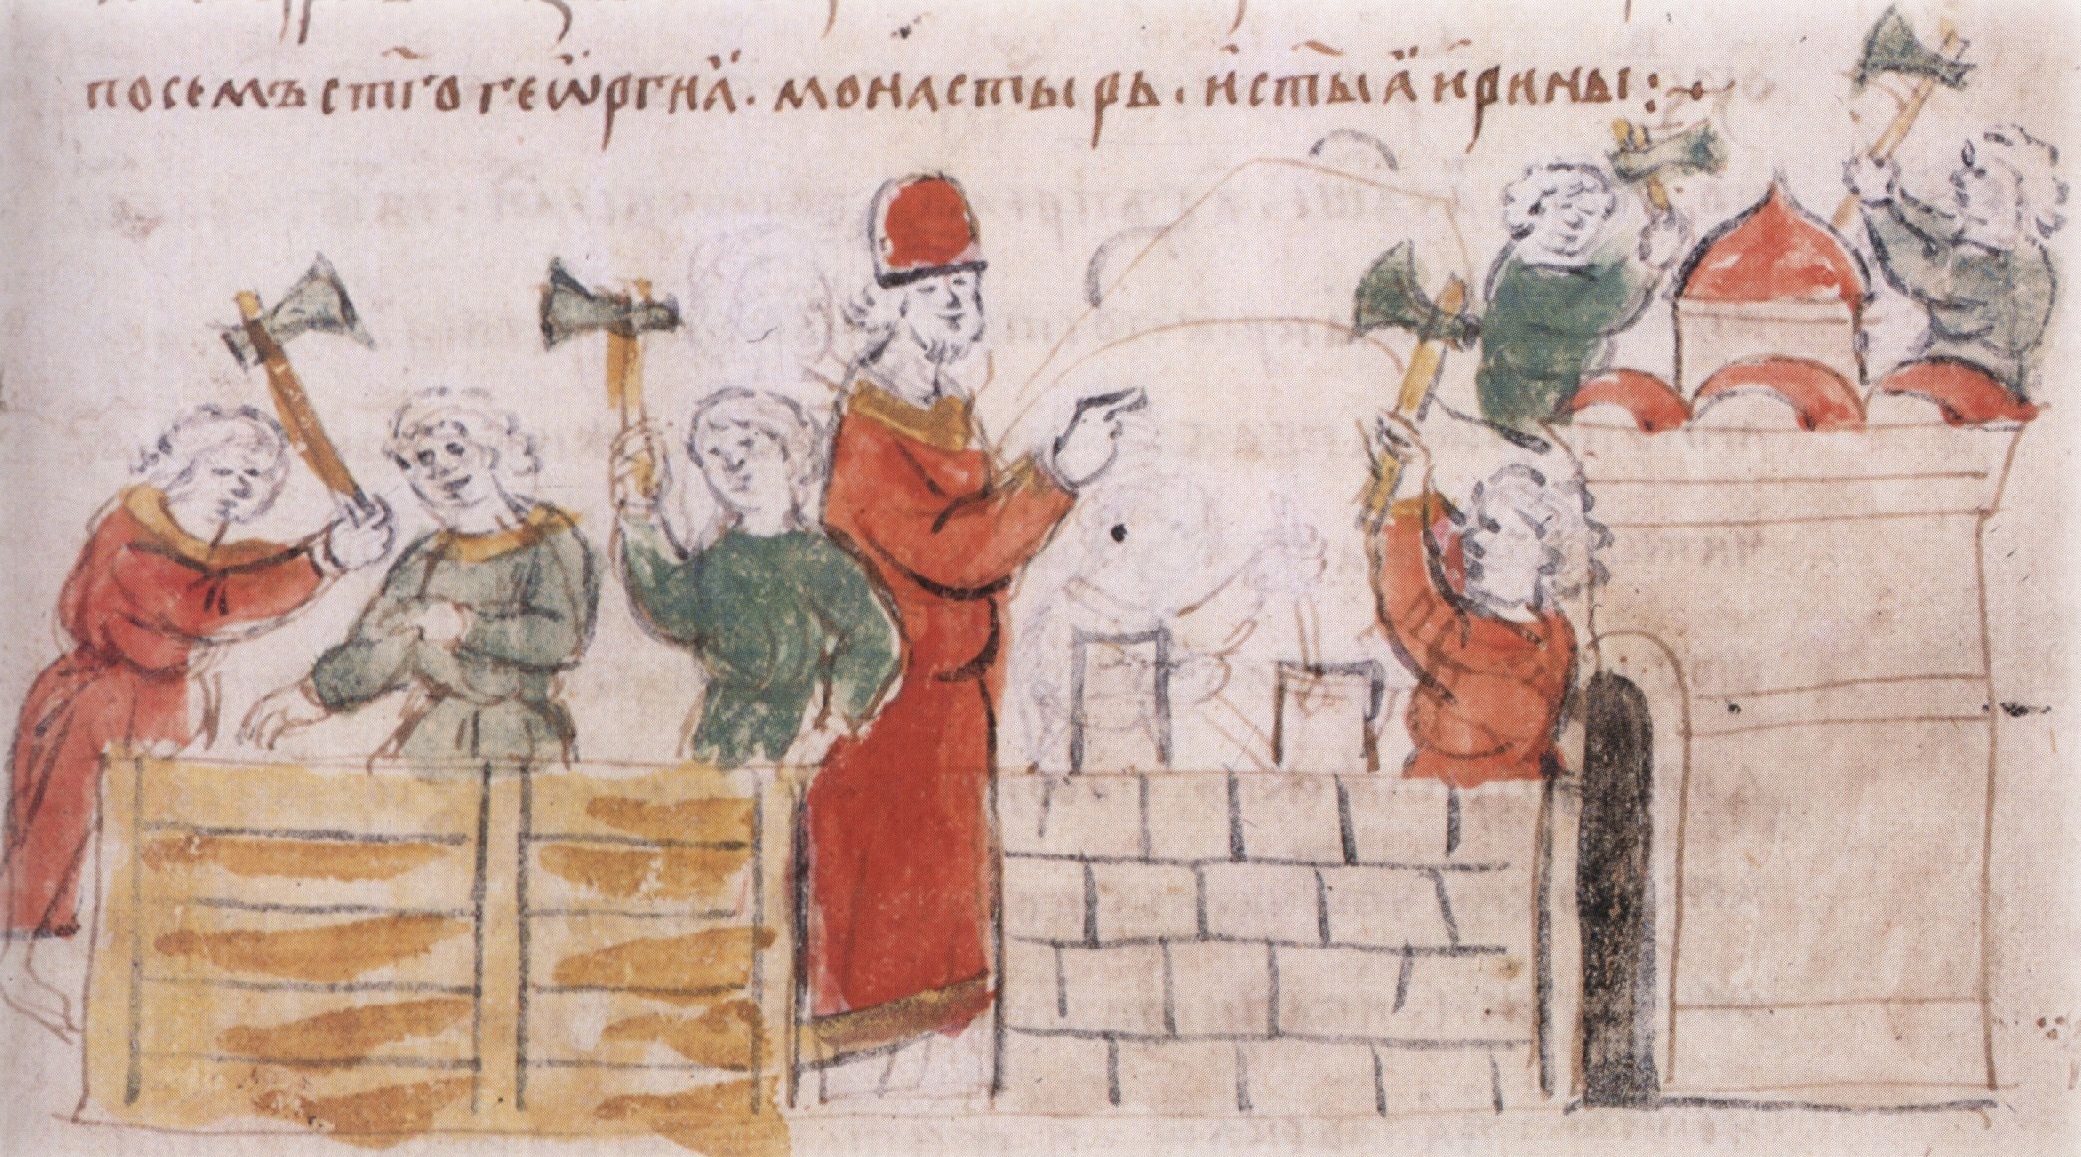 посемъ ст҃го геѡргиꙗ . монастырь . и ст҃ыꙗ ирины :~